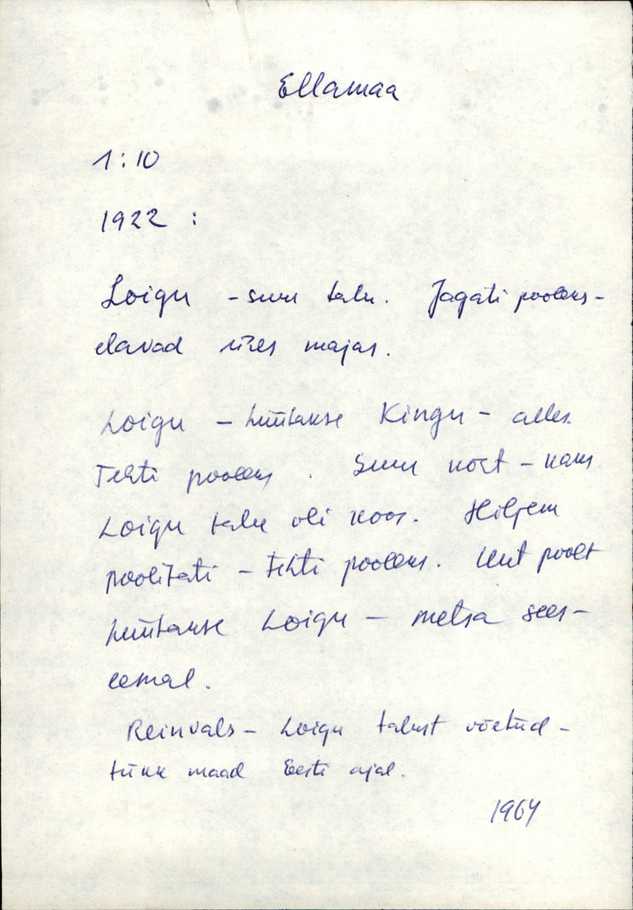 Ellamaa
1:10
1922 :
Loigu - suur talu. Jagati pooleks -
elavad ühes majas.
Loigu - hüütakse Kingu - alles.
Tehti pooleks. Suur koht - kaks
Loigu talu oli koos. Hiljem
poolitati - tehti pooleks. Uut poolt
hüütakse Loigu - metsa sees -
eemal.
Reinvals - Loigu talust võetud -
tükk maad Eesti ajal.
1964